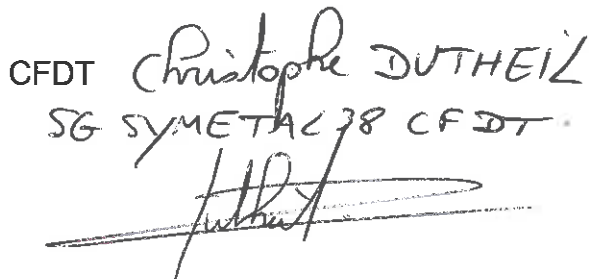 CFDT Christophe DUTHEIL
SG SYMETAL 38 CFDT.
Dutheil